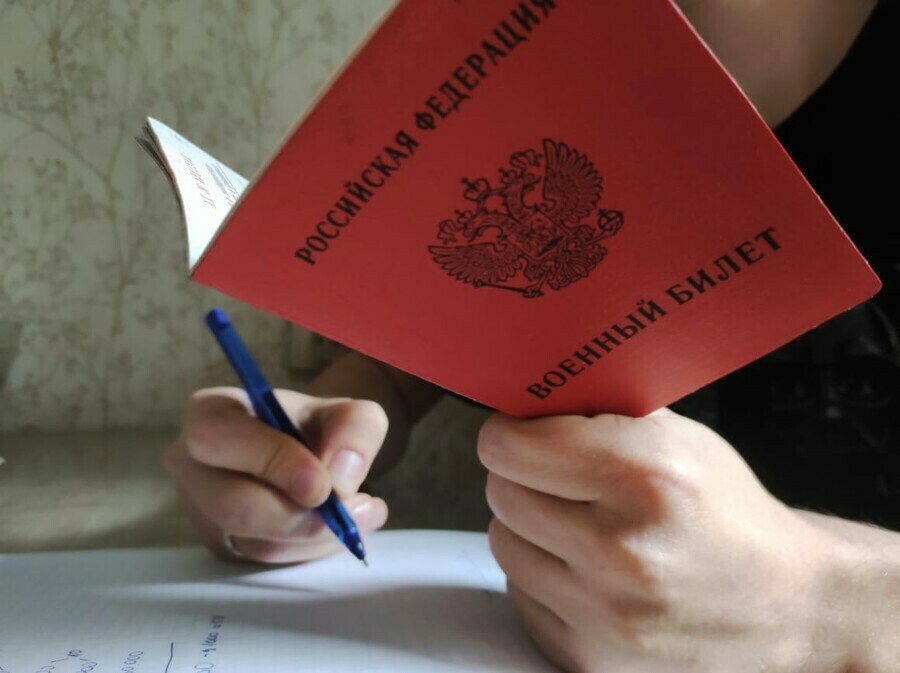 РОССИЙСКАЯ ФЕДЕРАЦИЯ
ВОЕННЫЙ БИЛЕТ